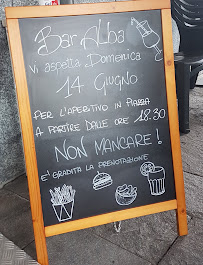 Bar Alba
Vi aspetta Domenica
14 GIUGNO
PER L'APERITIVO IN PIAZZA
A PARTIRE DALLE ORE 18.30
NON MANCARE!
E' GRADITA LA PRENOTAZIONE